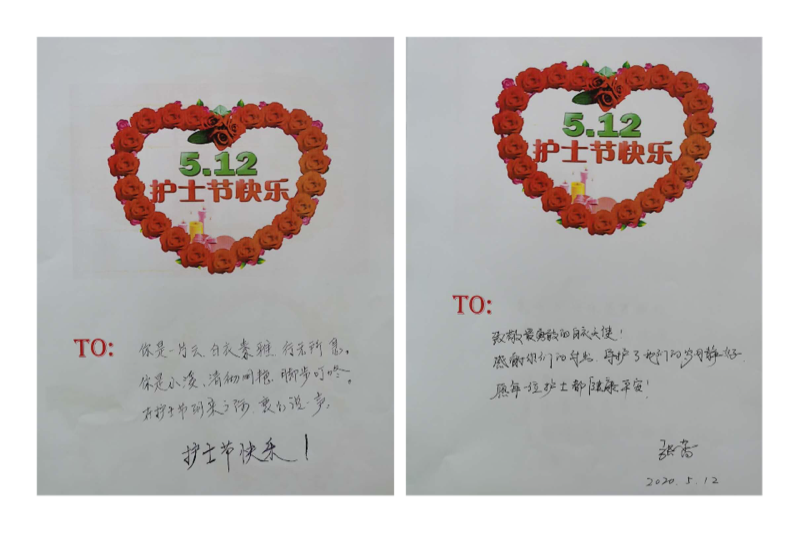 5.12
护士节快乐
TO:
你是一片云 白衣素雅 行无所息。
你是小溪,清彻明穏,脚步叮咚。
在护士节到来之际,我们说一声,
护士节快乐!
5.12
护士节快乐
TO:
致敬最勇敢的白衣天使!
感谢你们的付出,守护了我们的岁月静好,
愿每一位护士都健康平安!
2020.5.12